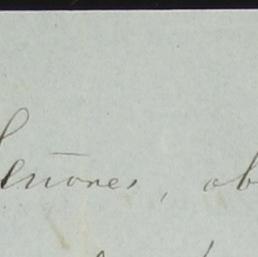 Señores, ob